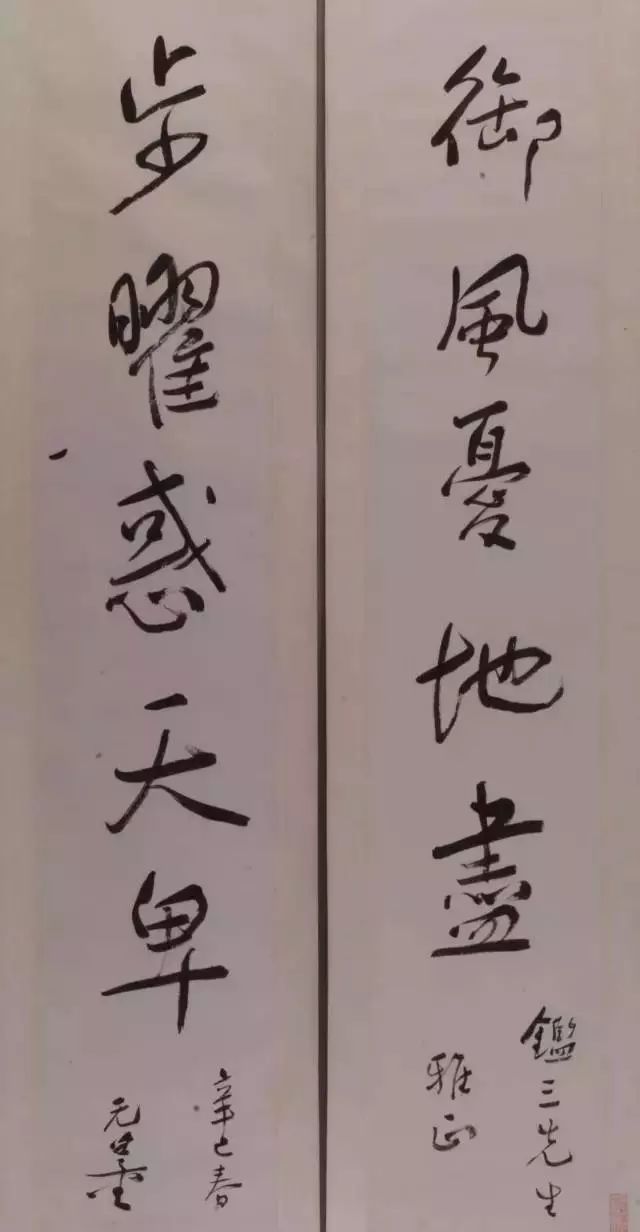 御風憂地盡
鑑三先生
雅正
步曜惑天卑
辛巳春